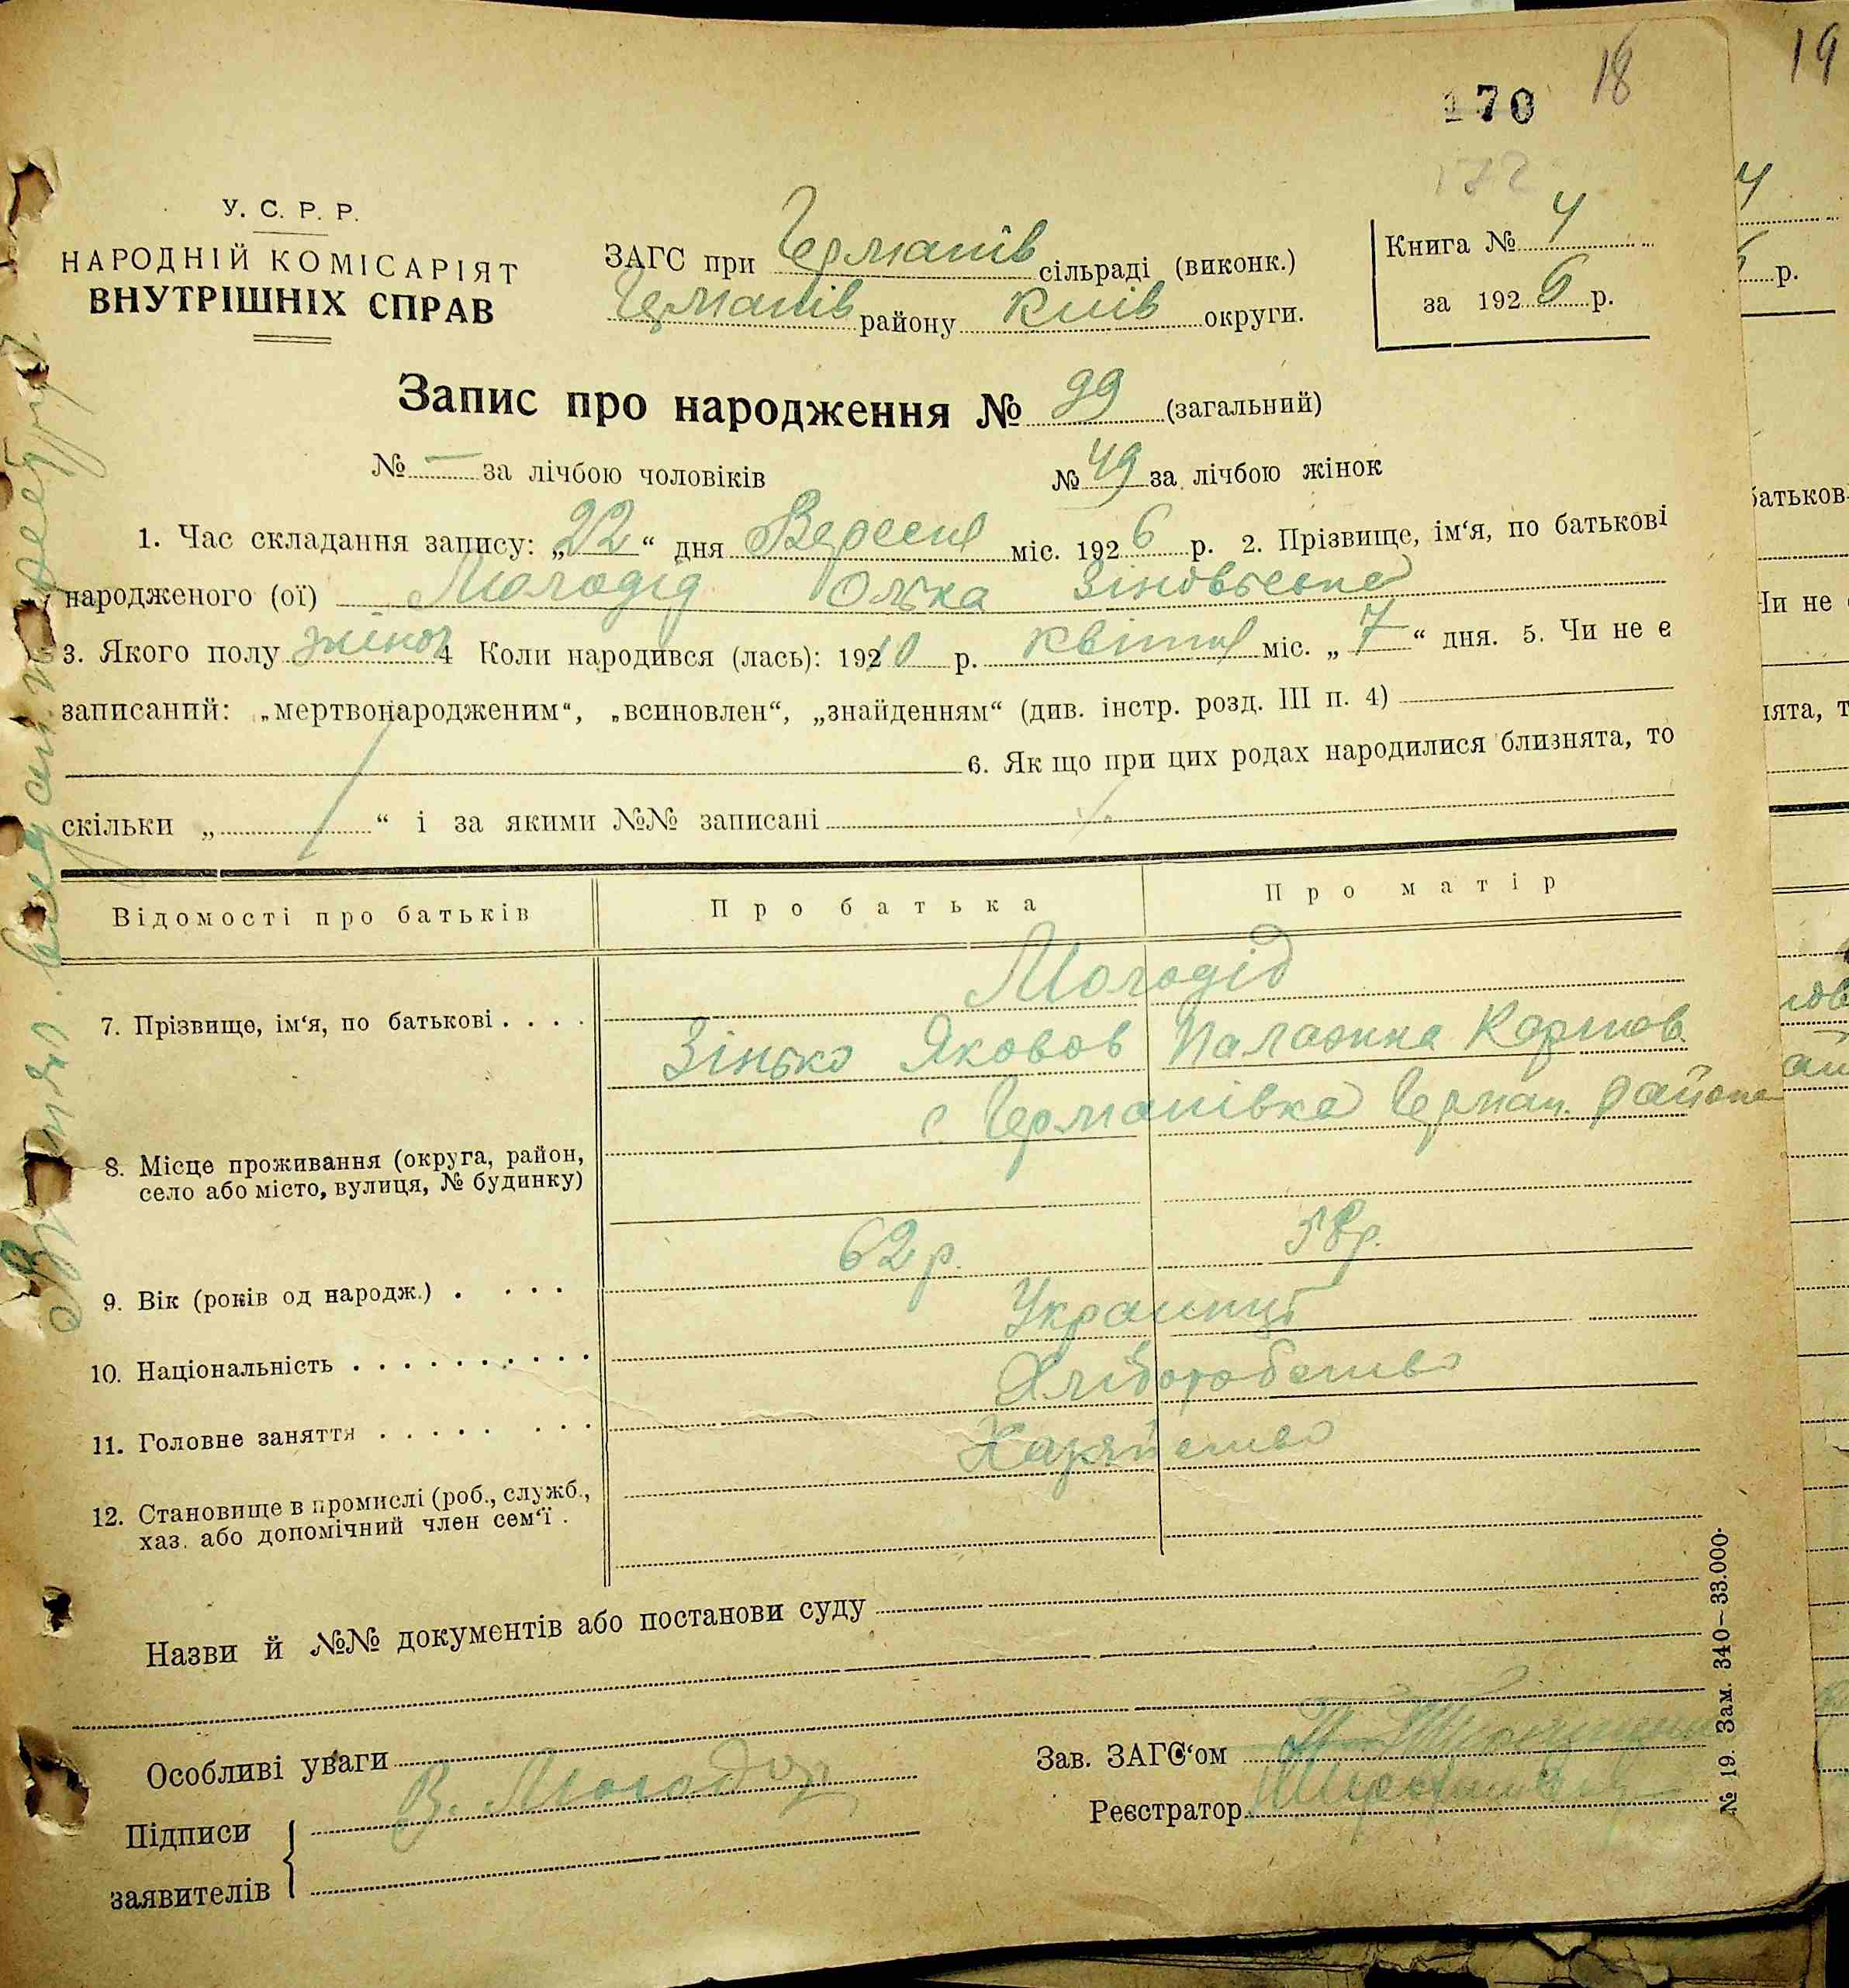 18
19
170
172
У. С. Р. Р.
НАРОДНІЙ КОМІСАРІЯТ
ВНУТРІШНІХ СПРАВ
ЗАГС при Германів сільраді (виконк.)
Германів району Київ округи.
Книга № 4
за 1926 р.
Запис про народження № 99 (загальний)
№ — за лічбою чоловіків № 49 за лічбою жінок
1. Час складання запису: „22“ дня Вересня міс. 1926 р. 2. Прізвище, ім‘я, по батькові
народженого (ої) Молодід Олька Зіновʼєвна
3. Якого полу жіноч 4 Коли народився (лась): 1910 р. квітня міс. „7“ дня. 5. Чи не є
записаний: „мертвонародженим“, „всиновлен“, „знайденням“ (див. інстр. розд. III п. 4)
6. Як що при цих родах народилися близнята, то
скільки „ “ і за якими №№ записані
Відомості про батьків Про батька Про матір
Молодід
7. Прізвище, ім‘я, по батькові
Зінько Яковов Палажка Карпов
с Германівка Герман. району
8. Місце проживання (округа, район,
село або місто, вулиця, № будинку)
62 р. 58 р.
9. Вік (років од народж.)
Українці
10. Національність
Хліборобство
11. Головне заняття
Хазяйство
12. Становище в промислі (роб., служб.,
хаз. або допомічний член сем‘ї .
Назви й №№ документів або постанови суду
Особливі уваги
Зав. ЗАГС‘ом
В. Молодід
Підписи
заявителів
Реєстратор
№ 19. Зам. 340–33.000.